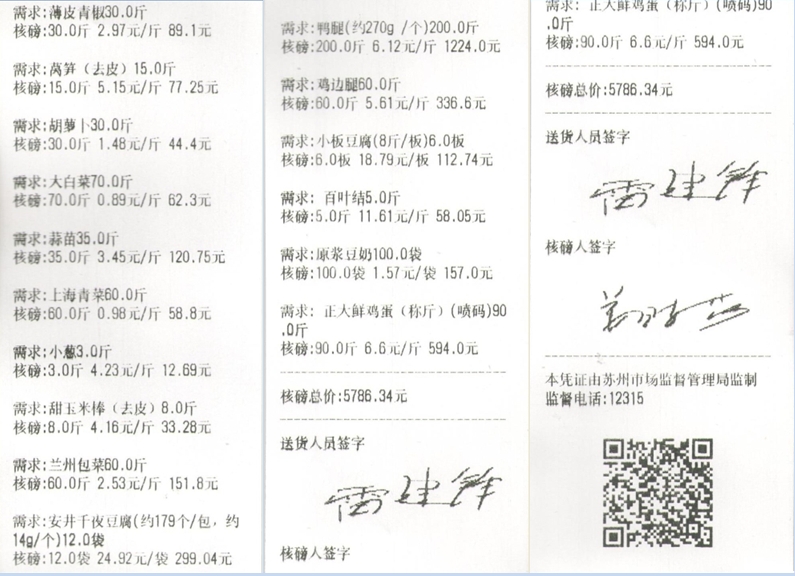 需求:薄皮青椒30.0斤
核磅:30.0斤 2.97元/斤 89.1元
需求:莴笋（去皮）15.0斤
核磅:15.0斤 5.15元/斤 77.25元
需求:胡萝卜30.0斤
核磅:30.0斤 1.48元/斤 44.4元
需求:大白菜70.0斤
核磅:70.0斤 0.89元/斤 62.3元
需求:蒜苗35.0斤
核磅:35.0斤 3.45元/斤 120.75元
需求:上海青菜60.0斤
核磅:60.0斤 0.98元/斤 58.8元
需求:小葱3.0斤
核磅:3.0斤 4.23元/斤 12.69元
需求:甜玉米棒（去皮）8.0斤
核磅:8.0斤 4.16元/斤 33.28元
需求:兰州包菜60.0斤
核磅:60.0斤 2.53元/斤 151.8元
需求:安井千夜豆腐(约179个/包，约
14g/个)12.0袋
核磅:12.0袋 24.92元/袋 299.04元
需求:鸭腿(约270g /个)200.0斤
核磅:200.0斤 6.12元/斤 1224.0元
需求:鸡边腿60.0斤
核磅:60.0斤 5.61元/斤 336.6元
需求:小板豆腐(8斤/板)6.0板
核磅:6.0板 18.79元/板 112.74元
需求: 百叶结5.0斤
核磅:5.0斤 11.61元/斤 58.05元
需求:原浆豆奶100.0袋
核磅:100.0袋 1.57元/袋 157.0元
需求: 正大鲜鸡蛋（称斤）(喷码)90
.0斤
核磅:90.0斤 6.6元/斤 594.0元
核磅总价:5786.34元
送货人员签字
雷建锋
核磅人签字
需求: 正大鲜鸡蛋（称斤）(喷码)90
.0斤
核磅:90.0斤 6.6元/斤 594.0元
核磅总价:5786.34元
送货人员签字
雷建锋
核磅人签字
本凭证由苏州市场监督管理局监制
监督电话:12315